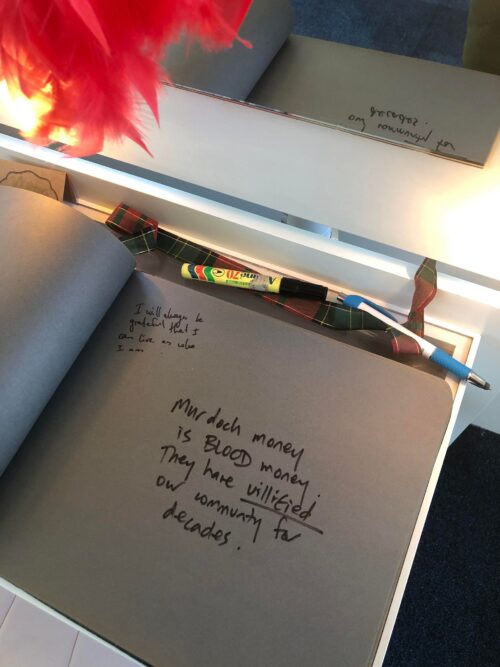 I will always be
grateful that I
can live as who
I am.
Murdoch money
is BLOOD money.
They have villified
our community for
decades.
70